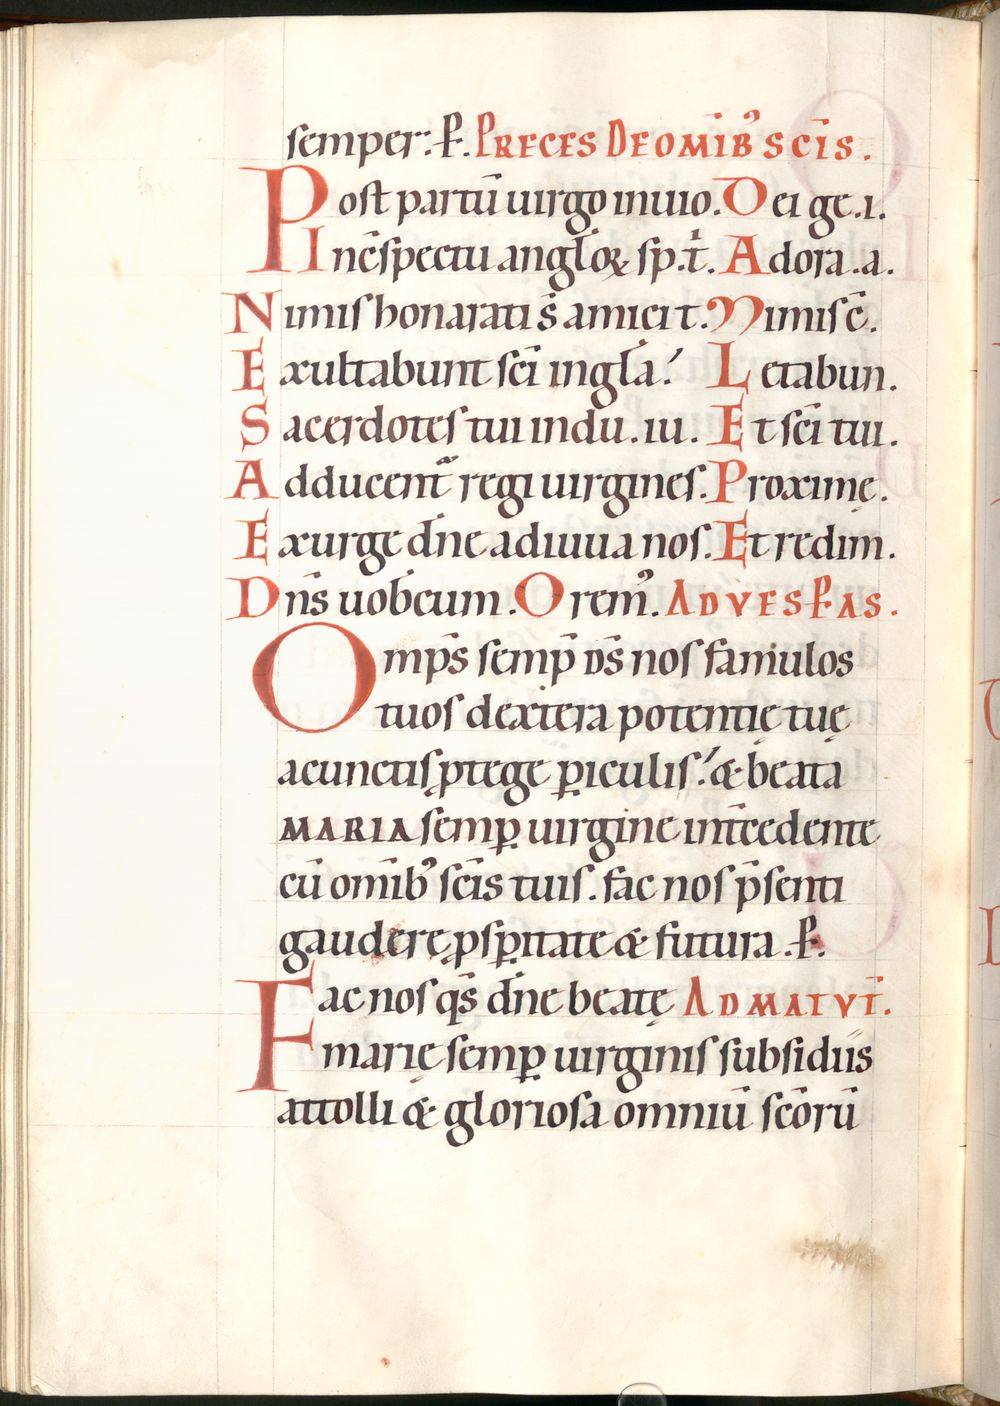 semper:. P̷. PRECES DE OMĪBꝰ SC̄IS.
Post partū uirgo inuio. Dei ge.ı.
In c̄spectu anglóꝝ sp.t̄. Adora.a.
Nimis honarati s̄ amici t. Nimis c̄.
Exultabunt sc̄i in gl̄a. Letabun.
Sacerdotes tui indu.iu. Et sc̄i tui.
Adducent᷑ regi uirgines. Proximę.
Exurge dn̄e adiuua nos. Et redim.
Dn̄s uobcum. Oremꝰ. AD VESP̄AS.
Omp̄s semp̄ ds̄ nos famulos
tuos dextera potentię tuę
a cunctis ꝓtege ꝑiculis. & beata
MARIA semꝑ uirgine int̄cedente
cū omībꝰ sc̄is tuis. fac nos p̄senti
gaudere ꝓsꝑitate & futura. P̷.
Fac nos qs̄ dn̄e beatę AD MATVT̄.
marię semꝑ uirginis subsidiis
attolli & gloriosa omniū sc̄orū